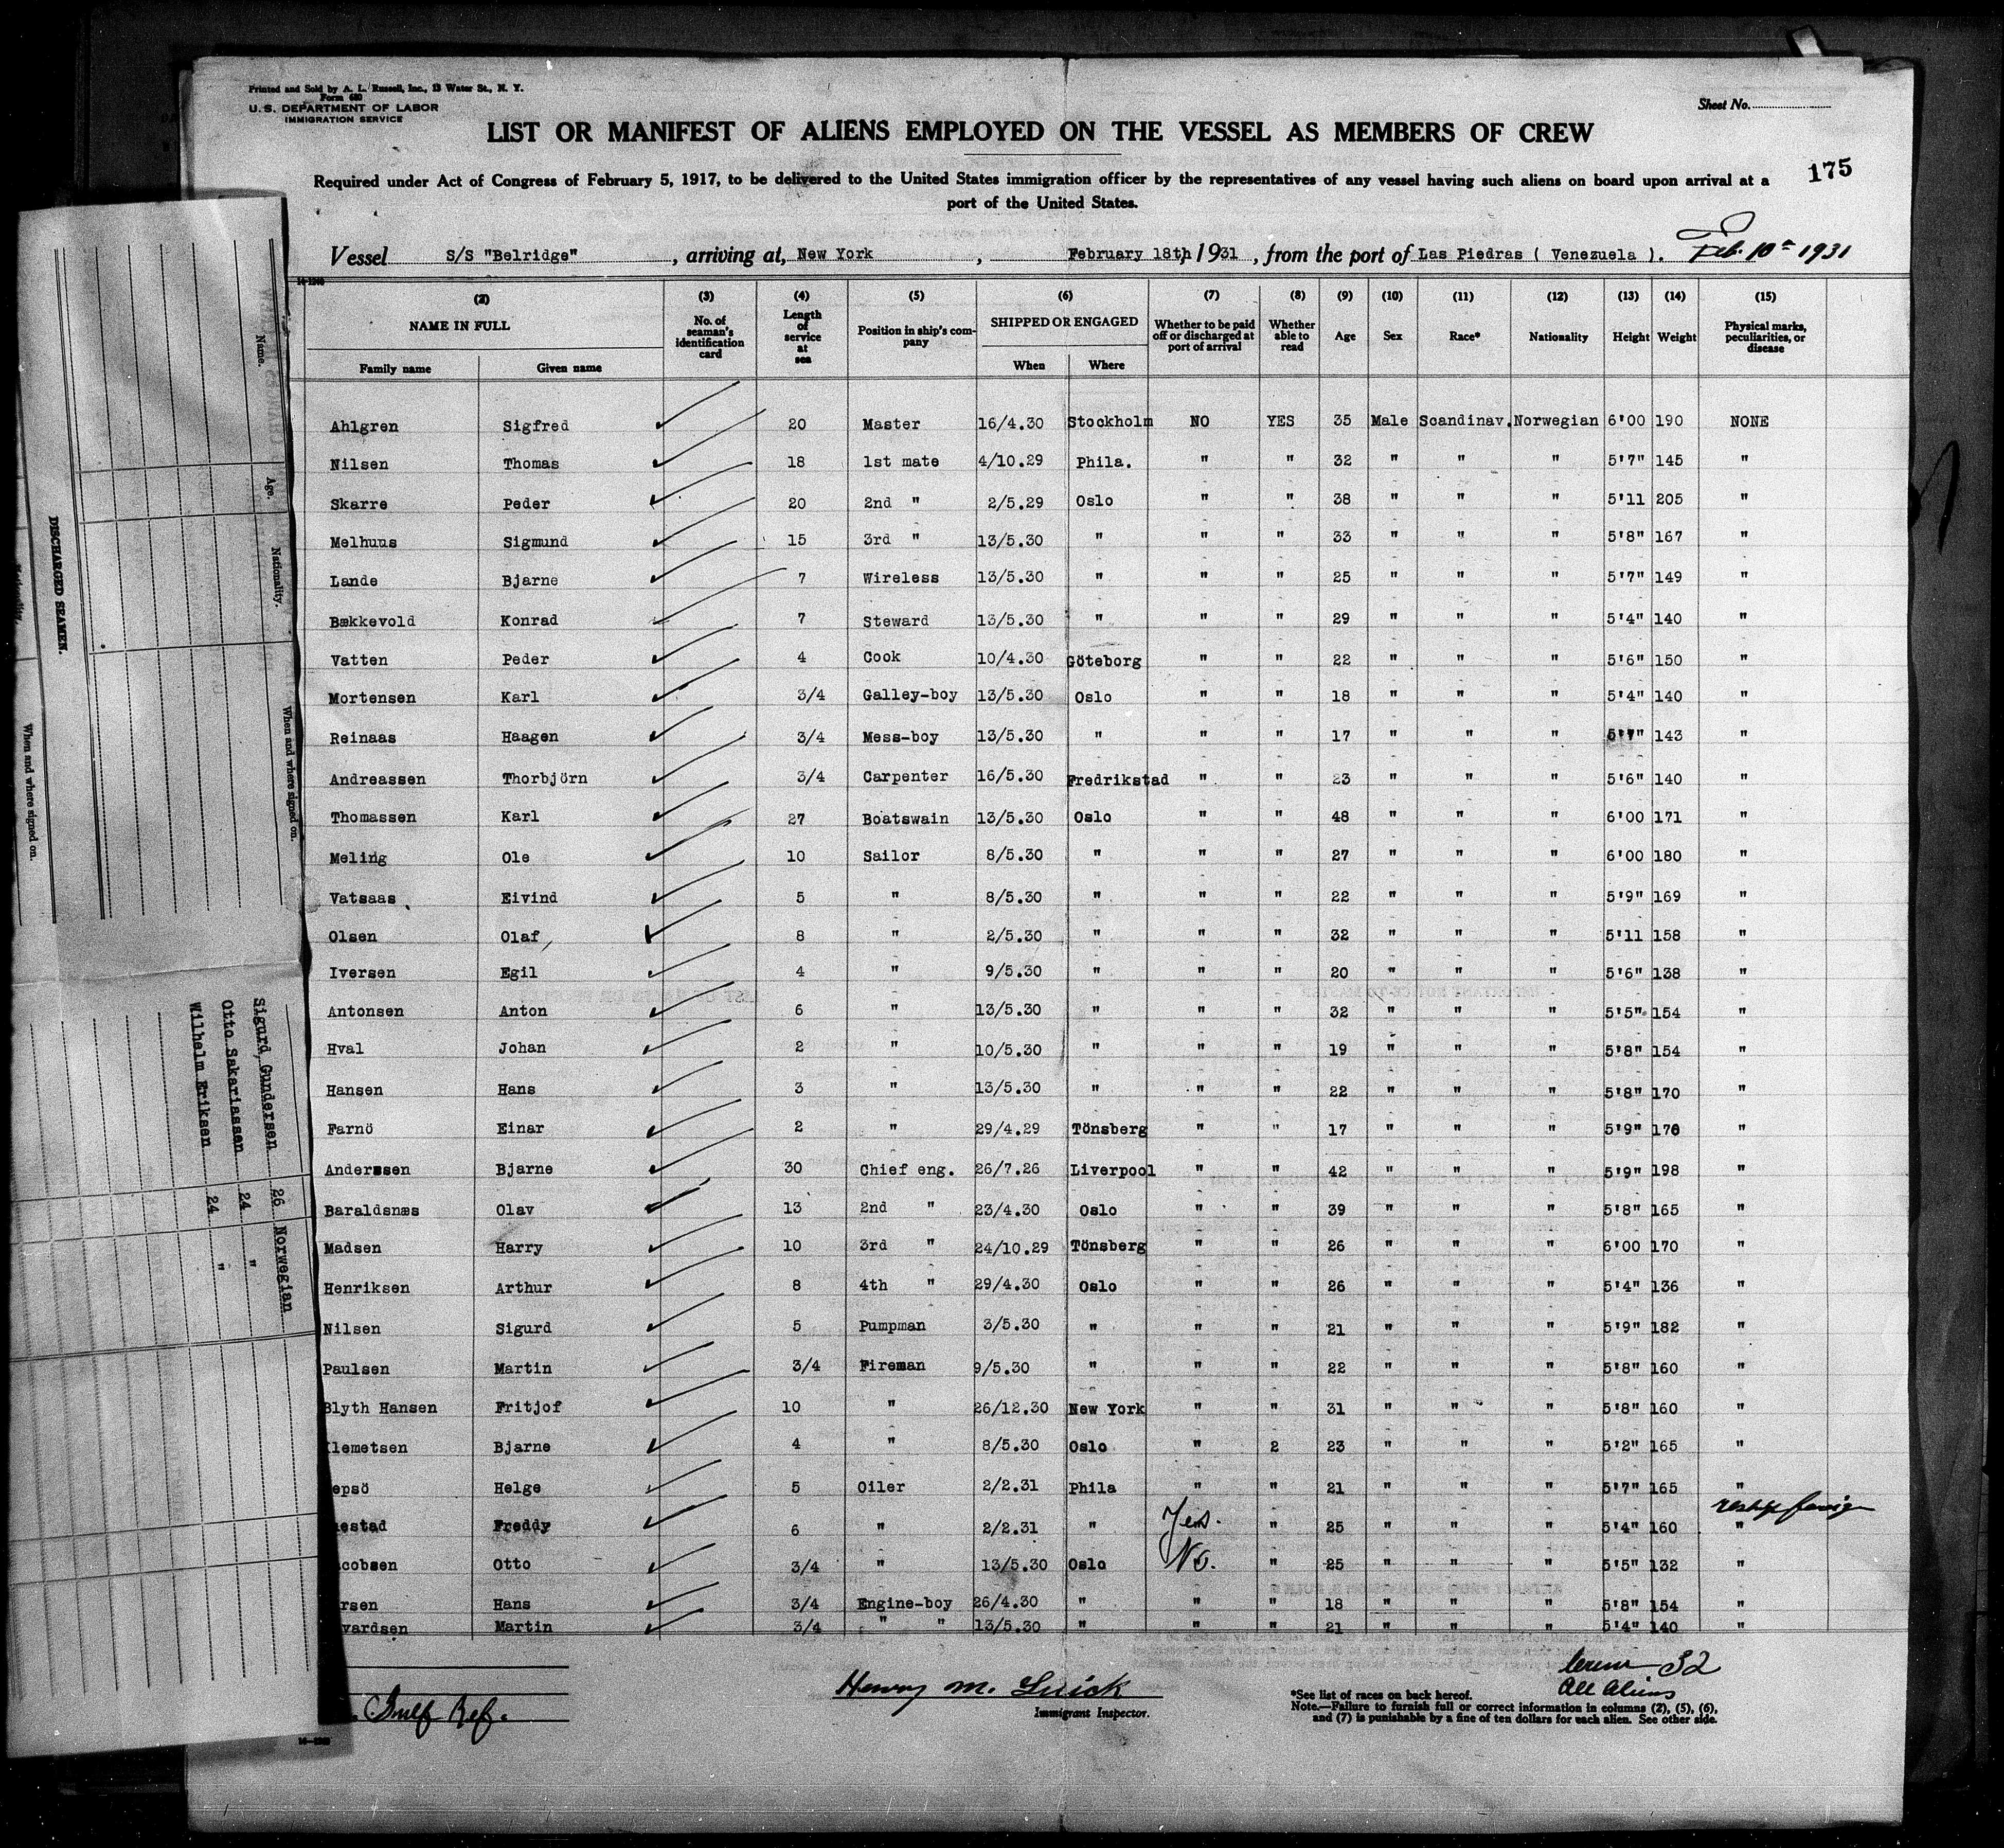 Printed and Sold by A. L. Russell, Inc., 13 Water St., N. Y.
Form 680
U. S. DEPARTMENT OF LABOR
IMMIGRATION SERVICE
Sheet No.
LIST OR MANIFEST OF ALIENS EMPLOYED ON THE VESSEL AS MEMBERS OF CREW
175
Required under Act of Congress of February 5, 1917, to be delivered to the United States immigration officer by the representatives of any vessel having such aliens on board upon arrival at a
port of the United States.
Vessel S/S "Belridge" , arriving at, New York , February 18th, 1931 , from the port of Las Piedras ( Venezuela ). Feb. 10th 1931
(2) (3) (4) (5) (6) (7) (8) (9) (10) (11) (12) (13) (14) (15)
NAME IN FULL No. of seaman's identification card Length of service at sea Position in ship's company SHIPPED OR ENGAGED Whether to be paid off or discharged at port of arrival Whether able to read Age Sex Race* Nationality Height Weight Physical marks, peculiarities, or disease
Family name Given name When Where
Ahlgren Sigfred 20 Master 16/4.30 Stockholm NO YES 35 Male Scandinav. Norwegian 6'00 190 NONE
Nilsen Thomas 18 1st mate 4/10.29 Phila. " " 32 " " " 5'7" 145 "
Skarre Peder 20 2nd " 2/5.29 Oslo " " 38 " " " 5'11 205 "
Melhuus Sigmund 15 3rd " 13/5.30 " " " 33 " " " 5'8" 167 "
Lande Bjarne 7 Wireless 13/5.30 " " " 25 " " " 5'7" 149 "
Bækkevold Konrad 7 Steward 13/5.30 " " " 29 " " " 5'4" 140 "
Vatten Peder 4 Cook 10/4.30 Göteborg " " 22 " " " 5'6" 150 "
Mortensen Karl 3/4 Galley-boy 13/5.30 Oslo " " 18 " " " 5'4" 140 "
Reinaas Haagen 3/4 Mess-boy 13/5.30 " " " 17 " " " 5'7" 143 "
Andreassen Thorbjörn 3/4 Carpenter 16/5.30 Fredrikstad " " 23 " " " 5'6" 140 "
Thomassen Karl 27 Boatswain 13/5.30 Oslo " " 48 " " " 6'00 171 "
Meling Ole 10 Sailor 8/5.30 " " " 27 " " " 6'00 180 "
Vatsaas Eivind 5 " 8/5.30 " " " 22 " " " 5'9" 169 "
Olsen Olaf 8 " 2/5.30 " " " 32 " " " 5'11 158 "
Iversen Egil 4 " 9/5.30 " " " 20 " " " 5'6" 138 "
Antonsen Anton 6 " 13/5.30 " " " 32 " " " 5'5" 154 "
Hval Johan 2 " 10/5.30 " " " 19 " " " 5'8" 154 "
Hansen Hans 3 " 13/5.30 " " " 22 " " " 5'8" 170 "
Farnö Einar 2 " 29/4.29 Tönsberg " " 17 " " " 5'9" 170 "
Anderssen Bjarne 30 Chief eng. 26/7.26 Liverpool " " 42 " " " 5'9" 198 "
Baraldsnæs Olav 13 2nd " 23/4.30 Oslo " " 39 " " " 5'8" 165 "
Madsen Harry 10 3rd " 24/10.29 Tönsberg " " 26 " " " 6'00 170 "
Henriksen Arthur 8 4th " 29/4.30 Oslo " " 26 " " " 5'4" 136 "
Nilsen Sigurd 5 Pumpman 3/5.30 " " " 21 " " " 5'9" 182 "
Paulsen Martin 3/4 Fireman 9/5.30 " " " 22 " " " 5'8" 160 "
Blyth Hansen Fritjof 10 " 26/12.30 New York " " 31 " " " 5'8" 160 "
Klemetsen Bjarne 4 " 8/5.30 Oslo " 2 23 " " " 5'2" 165 "
epsö Helge 5 Oiler 2/2.31 Phila " " 21 " " " 5'7" 165 "
estad Freddy 6 " 2/2.31 " Yes. " 25 " " " 5'4" 160 "
cobsen Otto 3/4 " 13/5.30 Oslo No. " 25 " " " 5'5" 132 "
rsen Hans 3/4 Engine-boy 26/4.30 " " " 18 " " " 5'8" 154 "
vardsen Martin 3/4 " " 13/5.30 " " " 21 " " " 5'4" 140 "
Gulf Ref.
Henry M. Luick
Immigrant Inspector.
Crew 32
All Aliens
*See list of races on back hereof.
Note.—Failure to furnish full or correct information in columns (2), (5), (6),
and (7) is punishable by a fine of ten dollars for each alien. See other side.
DISCHARGED SEAMEN.
Name. Age. Nationality. When and where signed on.
When and where signed on.
Sigurd Gundersen 26 Norwegian
Otto Sakariassen 24 "
Wilhelm Eriksen 24 "